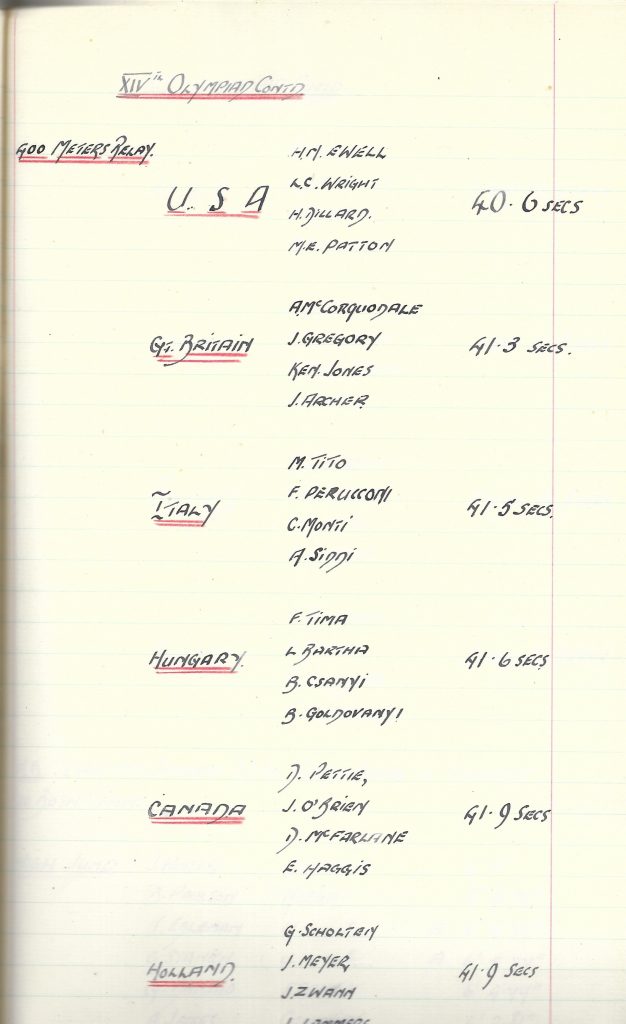 XIVth OLYMPIAD CONTD
400 METERS RELAY.
H.N. EWELL
L.C. WRIGHT
U. S A
40.6 SECS
H. DILLARD.
M.E. PATTON
A. McCORQUODALE
J. GREGORY
GT. BRITAIN
41.3 SECS.
KEN. JONES
J. ARCHER
M. TITO
F. PERUCCONI
ITALY
41.5 SECS.
C. MONTI
A. SIDDI
F. TIMA
L BARTHA
HUNGARY.
41.6 SECS
B. CSANYI
B. GOLDOVANYI
D. PETTIE,
J. O'BRIEN
CANADA
41.9 SECS
D. McFARLANE
E. HAGGIS
G. SCHOLTEN
J. MEYER
HOLLAND.
41.9 SECS
J. ZWANN
L. LAMMERS